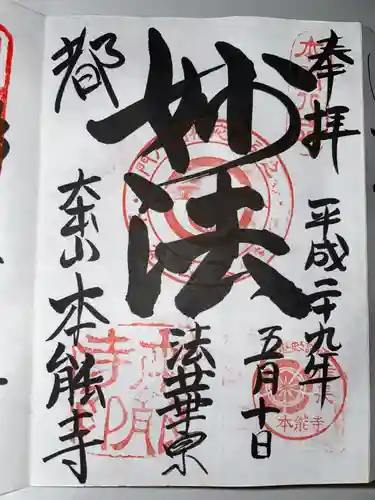 奉拝
平成二十九年
五月十日
妙法
法華宗
都
大本山
本能寺
本能寺